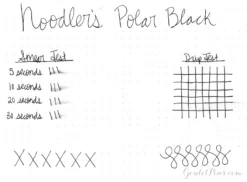 Noodler's Polar Black
Smear Test
Drip Test
5 seconds
10 seconds
20 seconds
30 seconds
X X X X X X
GouletPens.com